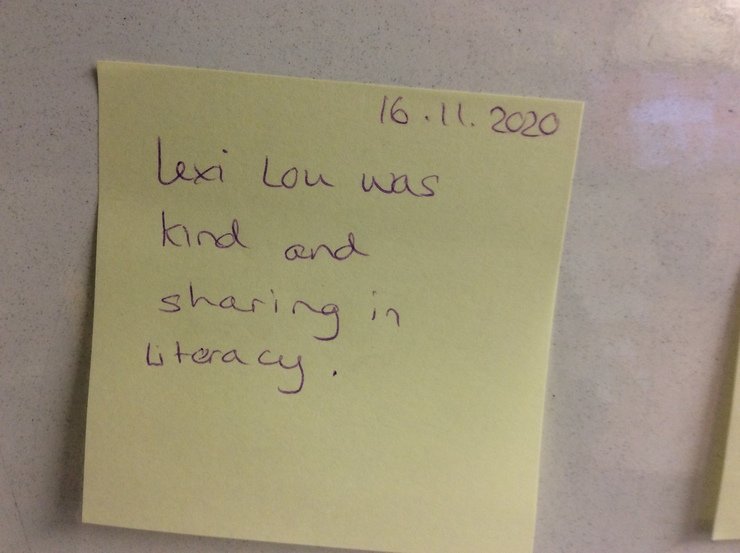 16.11.2020
Lexi Lou was
kind and
sharing in
Literacy.